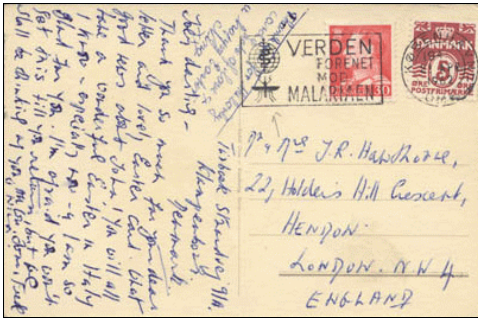 VERDEN
FORENET
MOD
MALARIAEN
30
DANMARK
5
POSTFRIMÆRKE
Mr & Mrs J.R. Hawthorne,
22, Holders Hill Crescent,
HENDON.
LONDON. N.W 4
ENGLAND
Strandvej
Klampenborg
Denmark
Thank you so much for your dear
letter and lovely Easter card. What
good news about John! You will all
have a wonderful Easter in Italy
I hope - especially you - I am so
glad for you. I'm afraid you won't
get this till you return but I'll
be thinking of you